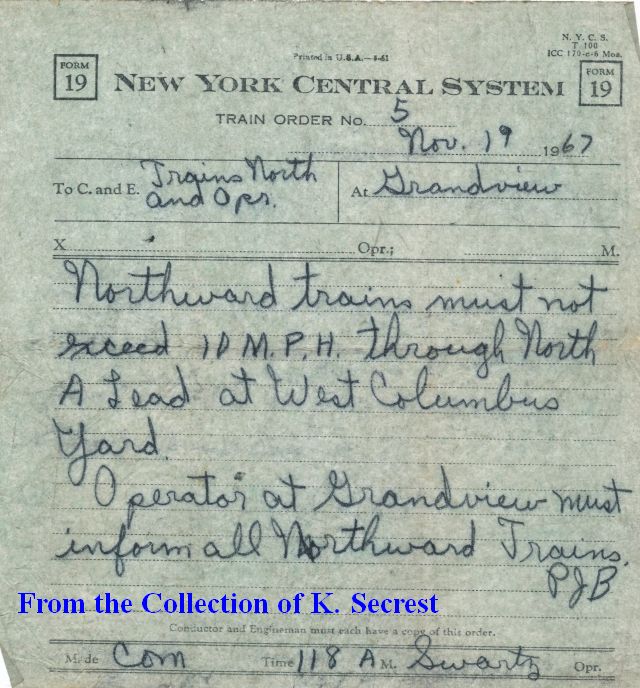 N. Y. C. S.
T 100
ICC 170-c-6 Mos.
Printed in U.S.A.—8-61
FORM 19
NEW YORK CENTRAL SYSTEM
FORM 19
TRAIN ORDER No. 5
Nov. 19 1967
To C. and E. Trains North and Oprs.
At Grandview
X Opr.; M.
Northward trains must not
exceed 10 M.P.H. through North
A Lead at West Columbus
Yard.
Operator at Grandview must
inform all Northward Trains.
PJB
From the Collection of K. Secrest
Conductor and Engineman must each have a copy of this order.
Made Com Time 118 A M. Swartz Opr.